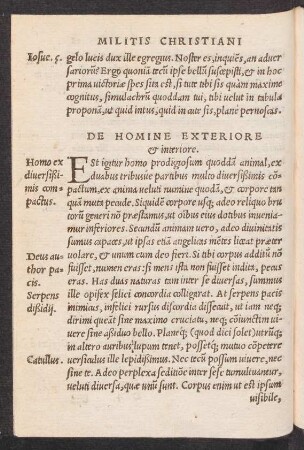 MILITIS CHRISTIANI
Iosue. 5. gelo lucis dux ille egregius. Noster es, inquiẽs, an aduer
sariorũ? Ergo quoniã tecũ ipse bellũ suscepisti, & in hoc
prima uictoriæ spes sita est, si tute tibi sis quàm maxime
cognitus, simulachrũ quoddam tui, tibi ueluti in tabula
proponã, ut quid intus, quid in cute sis, plane pernoscas.
DE HOMINE EXTERIORE
& interiore.
Homo ex
diuersißi-
mis com-
pactus.
ESt igitur homo prodigiosum quoddã animal, ex
duabus tribusue partibus multo diuersißimis cõ-
pactum, ex anima ueluti numine quodã, & corpore tan
quã muta pecude. Siquidẽ corpore usq; adeo reliquo bru
torũ generi nõ præstamus, ut oĩbus eius dotibus inuenia-
mur inferiores. Secundũ animam uero, adeo diuinitatis
sumus capaces, ut ipsas etiã angelicas mẽtes liceat præter
uolare, & unum cum deo fieri. Si tibi corpus additũ nõ
Deus au-
thor pa-
cis.
fuisset, numen eras: si mens ista non fuisset indita, pecus
eras. Has duas naturas tam inter se diuersas, summus
Serpens
dißidij.
ille opifex felici concordia colligarat. At serpens pacis
inimicus, infelici rursus discordia dissecuit, ut iam neq;
dirimi queãt sine maximo cruciatu, neq; cõiunctim ui-
uere sine aßiduo bello. Planeq; (quod dici solet) utrũq;
in altero auribus lupum tenet, possetq; mutuo cõpetere
Catullus. uersiculus ille lepidißimus. Nec tecũ possum uiuere, nec
sine te. Adeo perplexa seditiõe inter sese tumultuantur,
ueluti diuersa, quæ unũ sunt. Corpus enim ut est ipsum
uisibile,